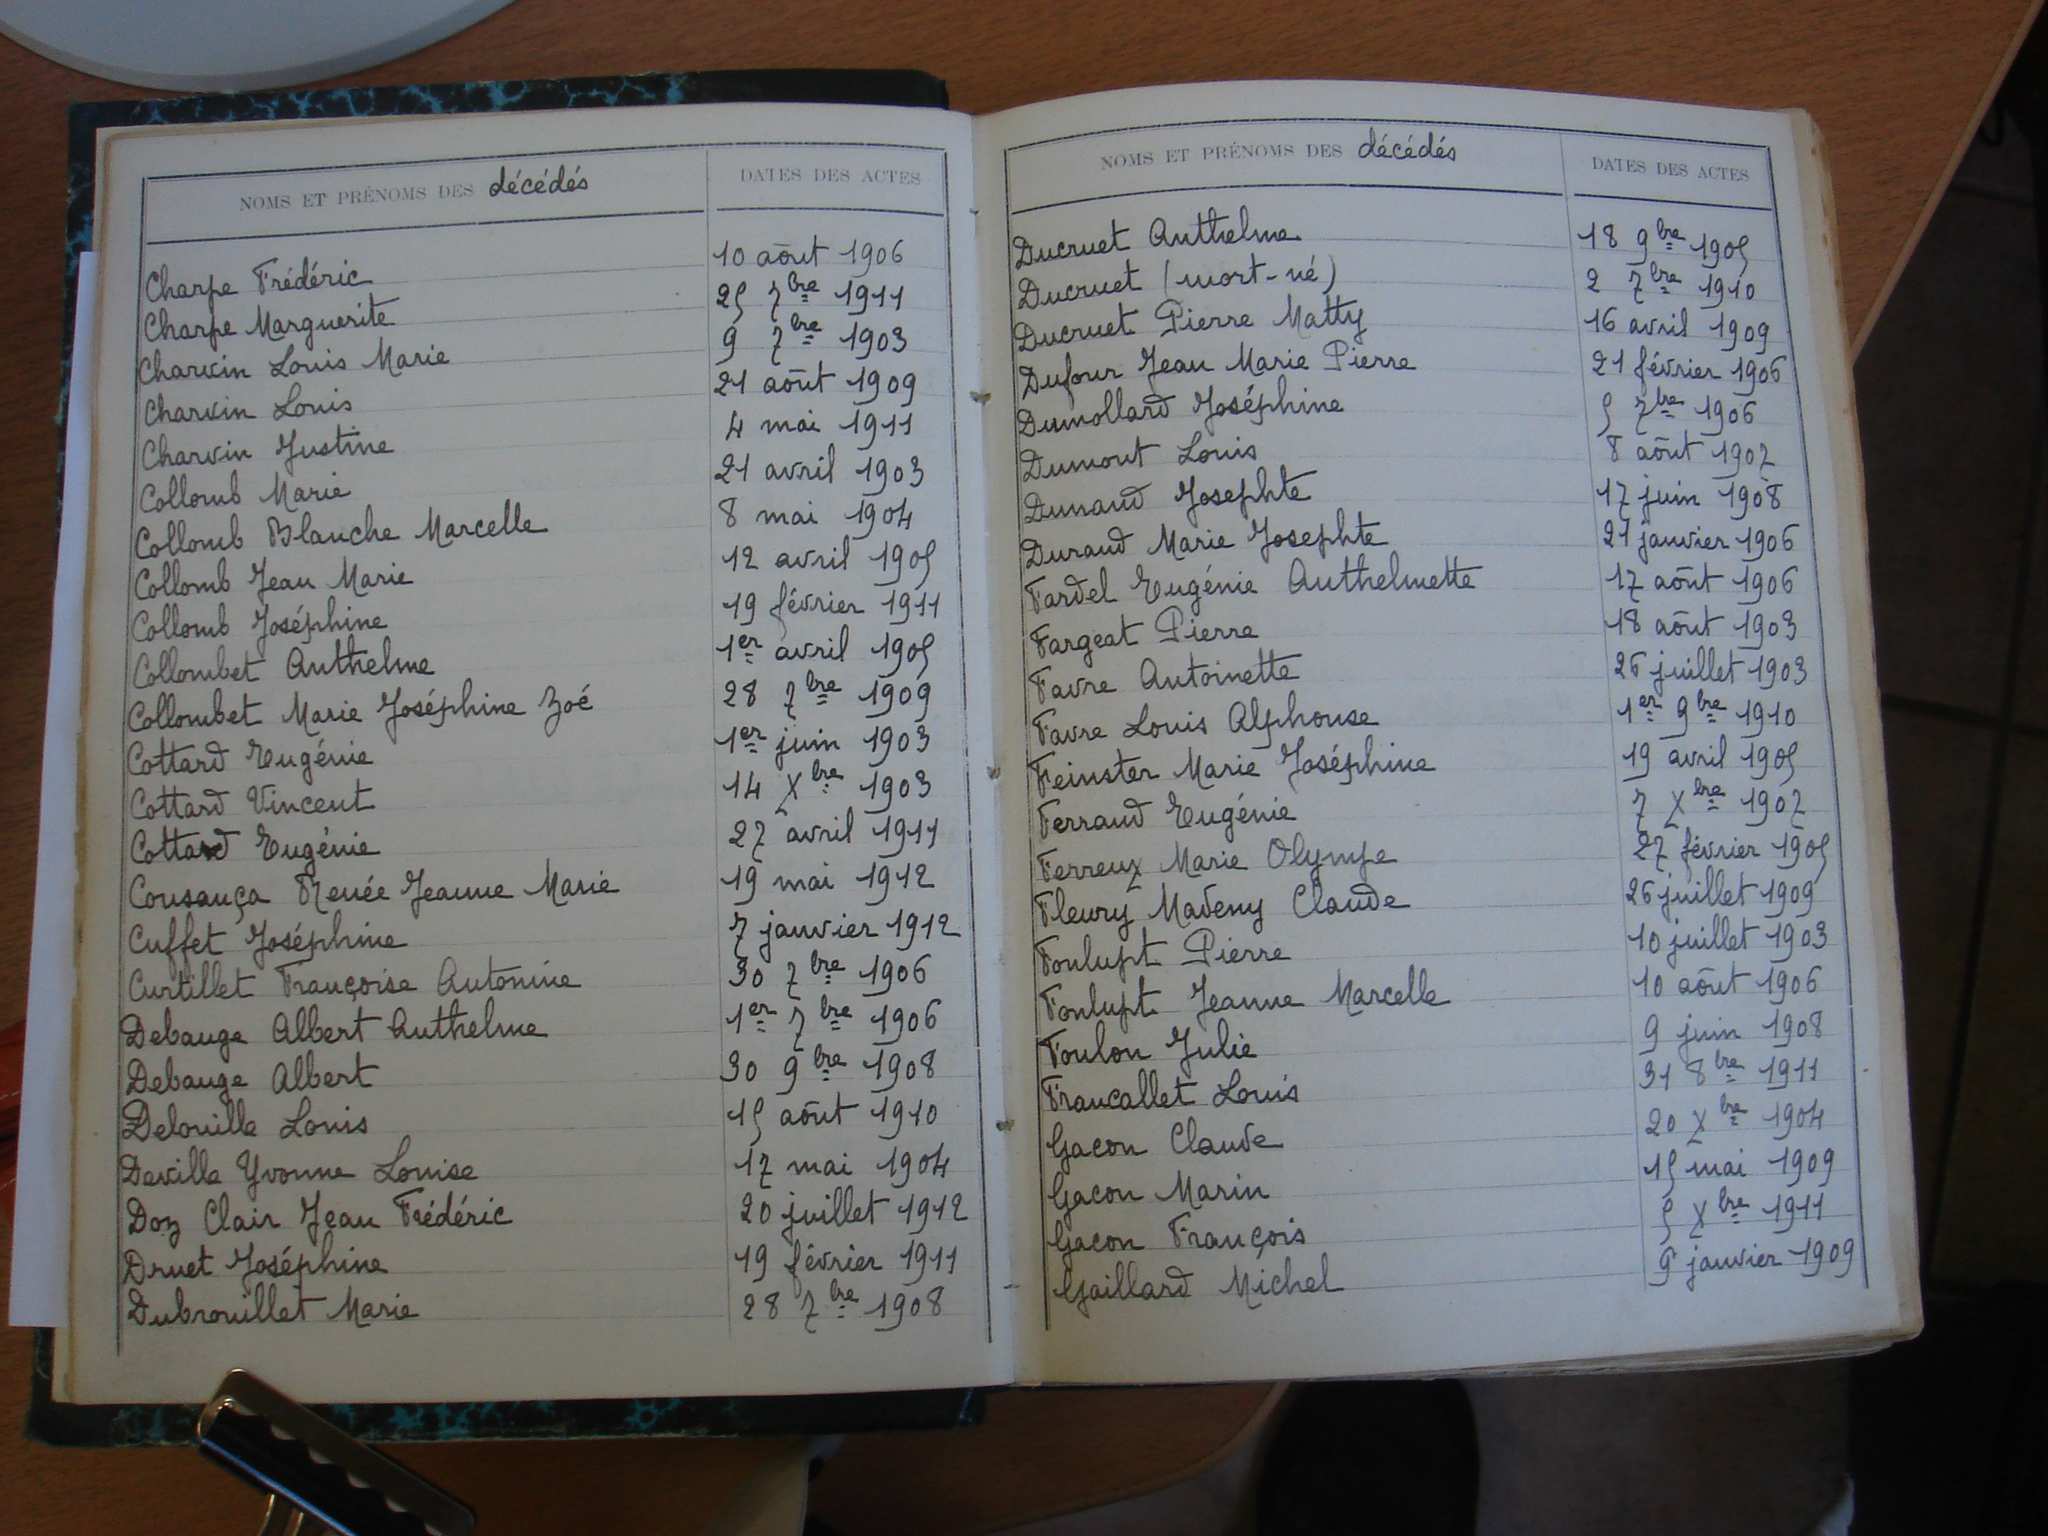 NOMS ET PRÉNOMS DES décédés DATES DES ACTES
Charpe Frédéric 10 août 1906
Charpe Marguerite 25 7bre 1911
Charvin Louis Marie 9 7bre 1903
Charvin Louis 21 août 1909
Charvin Justine 4 mai 1911
Collomb Marie 21 avril 1903
Collomb Blanche Marcelle 8 mai 1904
Collomb Jean Marie 12 avril 1905
Collomb Joséphine 19 février 1911
Collombet Anthelme 1er avril 1905
Collombet Marie Joséphine Zoé 28 7bre 1909
Cottard Eugénie 1er juin 1903
Cottard Vincent 14 Xbre 1903
Cottard Eugénie 27 avril 1911
Cousança Renée Jeanne Marie 19 mai 1912
Cuffet Joséphine 7 janvier 1912
Curtillet Françoise Antonine 30 7bre 1906
Debauge Albert Anthelme 1er 7bre 1906
Debauge Albert 30 9bre 1908
Delouille Louis 15 août 1910
Deville Yvonne Louise 17 mai 1904
Doz Clair Jean Frédéric 20 juillet 1912
Druet Joséphine 19 février 1911
Dubrouillet Marie 28 7bre 1908
NOMS ET PRÉNOMS DES décédés DATES DES ACTES
Ducruet Anthelme 18 9bre 1905
Ducruet (mort-né) 2 7bre 1910
Ducruet Pierre Matty 16 avril 1909
Dufour Jean Marie Pierre 21 février 1906
Dumollard Joséphine 5 7bre 1906
Dumont Louis 8 août 1902
Dunand Josephte 17 juin 1908
Durand Marie Josephte 21 janvier 1906
Fardel Eugénie Anthelmette 17 août 1906
Fargeat Pierre 18 août 1903
Favre Antoinette 26 juillet 1903
Favre Louis Alphonse 1er 9bre 1910
Feinster Marie Joséphine 19 avril 1905
Ferrand Eugénie 7 Xbre 1902
Ferreux Marie Olympe 27 février 1905
Fleury Madeny Claude 26 juillet 1909
Foulupt Pierre 10 juillet 1903
Foulupt Jeanne Marcelle 10 août 1906
Foulon Julie 9 juin 1908
Francallet Louis 31 8bre 1911
Gacon Claude 20 Xbre 1904
Gacon Marin 15 mai 1909
Gacon François 5 Xbre 1911
Gaillard Michel 9 janvier 1909